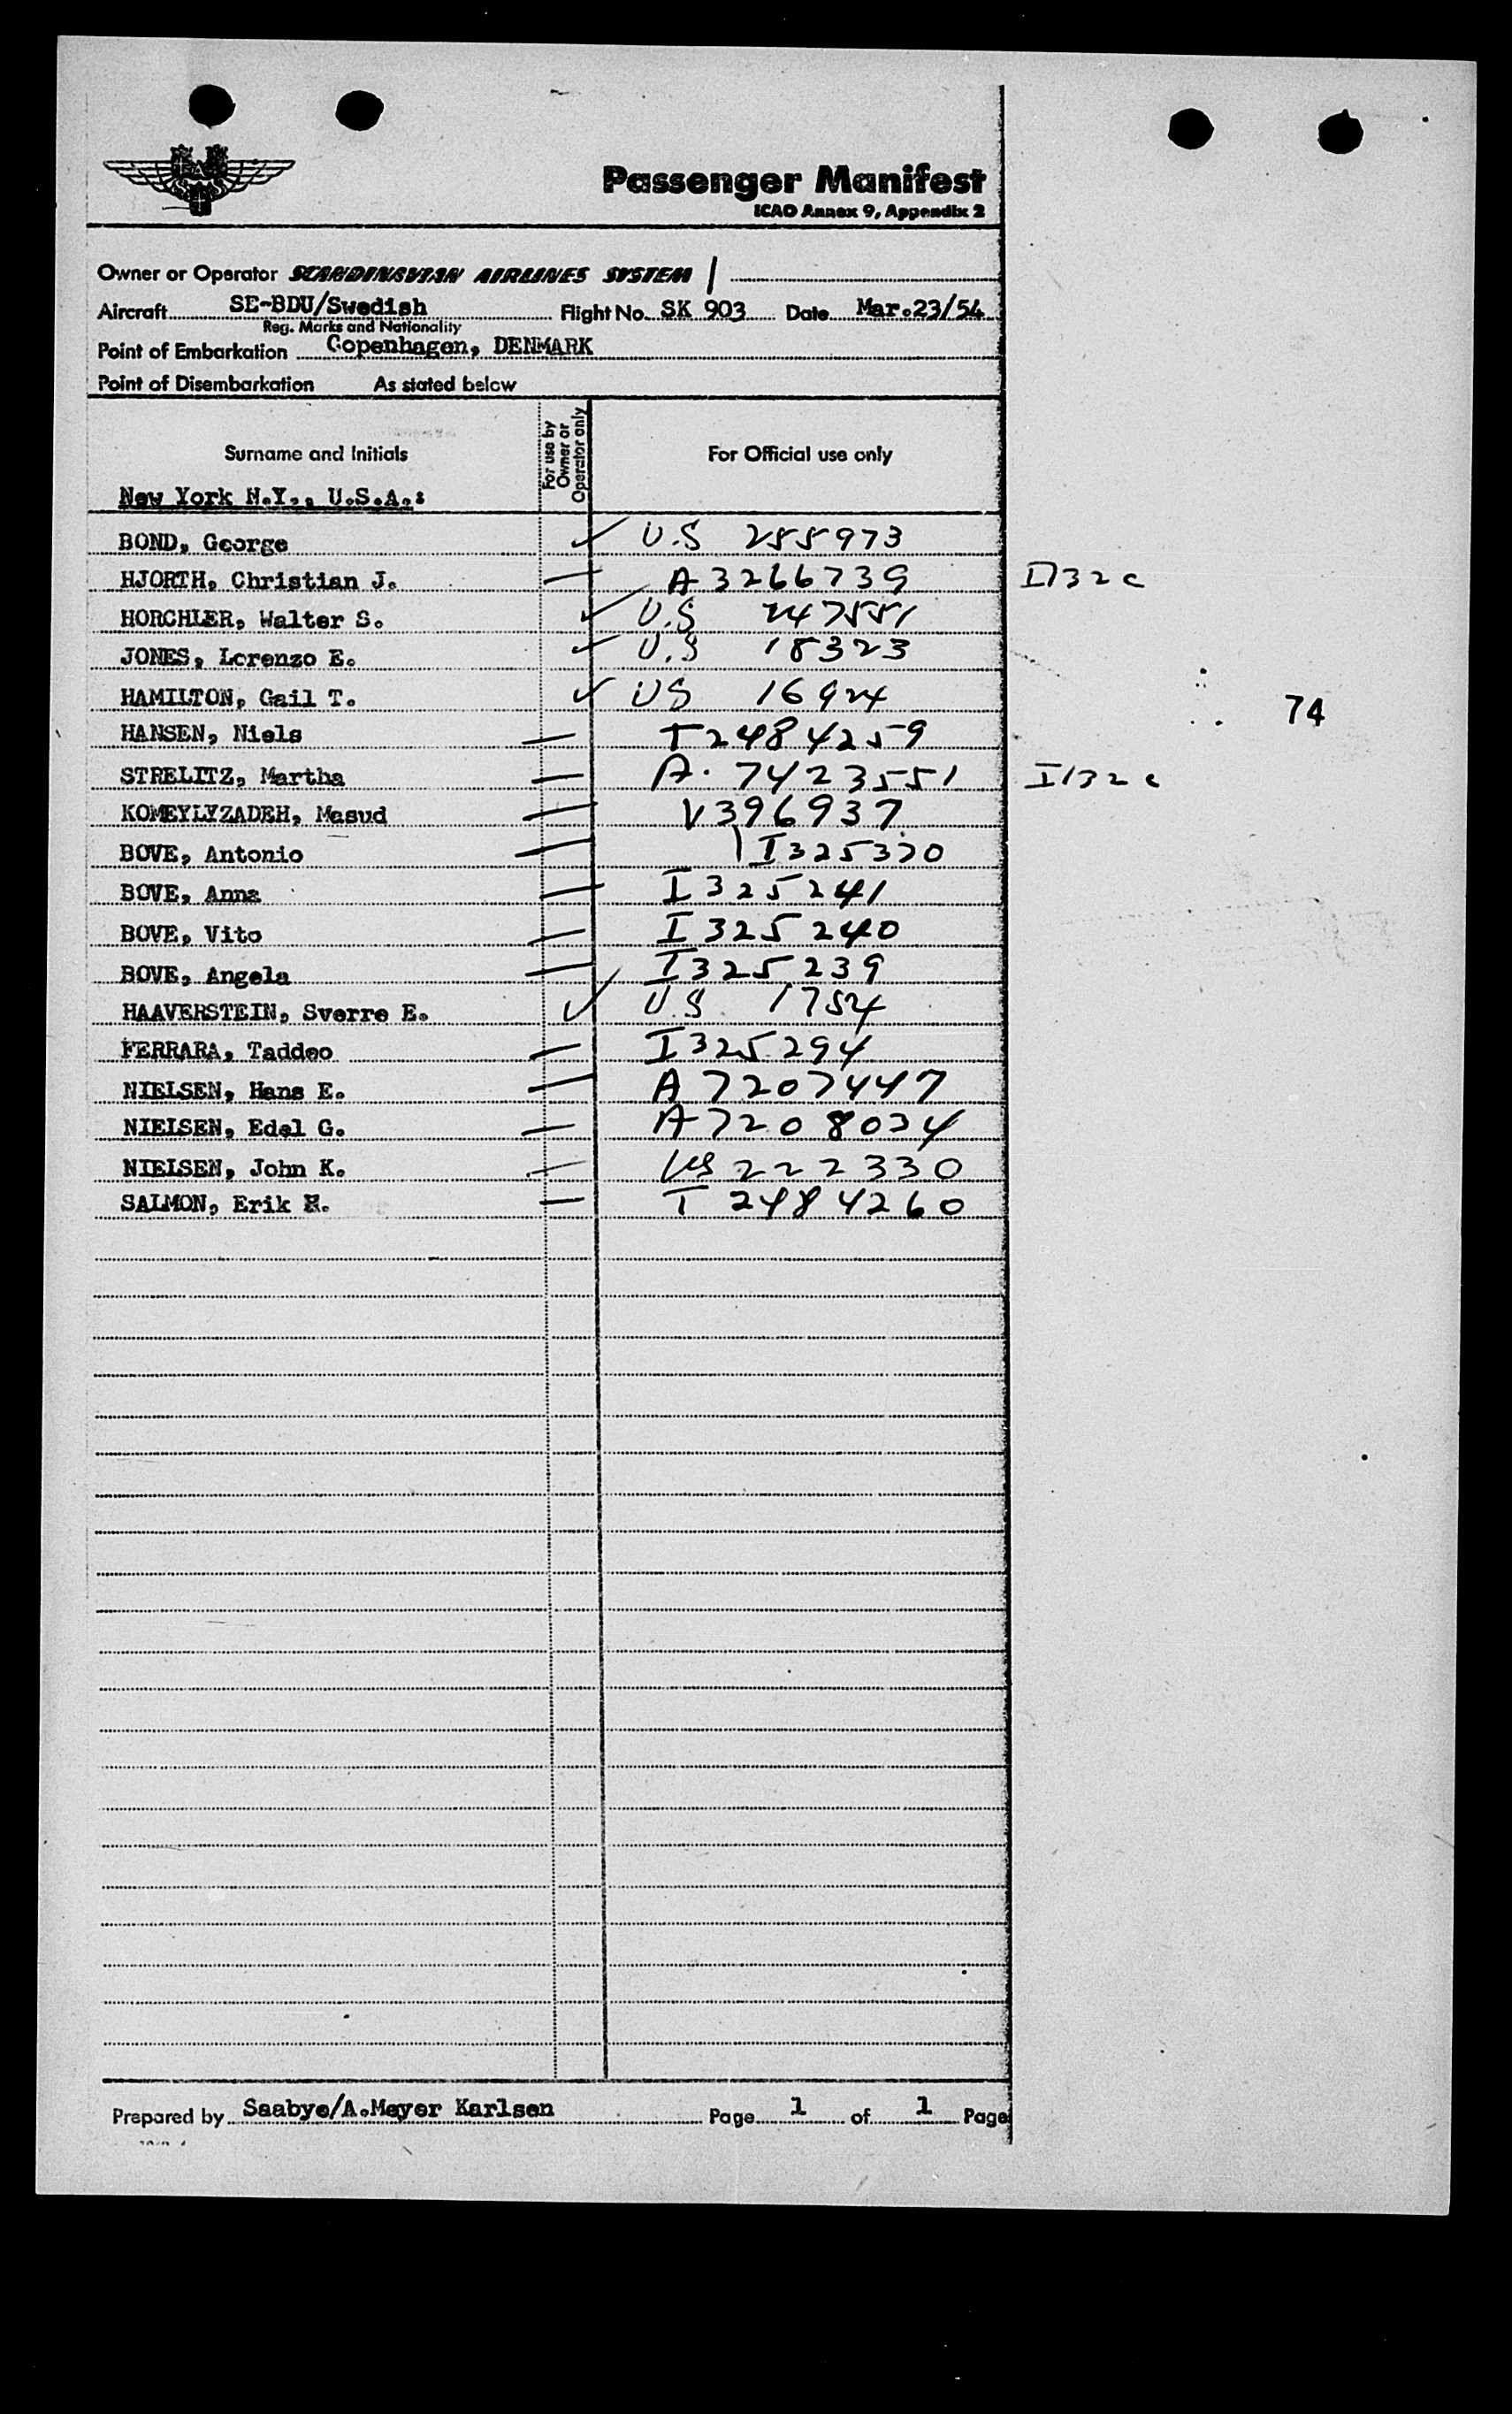 Passenger Manifest
ICAO Annex 9, Appendix 2
Owner or Operator SCANDINAVIAN AIRLINES SYSTEM
Aircraft SE-BDU/Swedish Flight No. SK 903 Date Mar.23/54
Reg. Marks and Nationality
Point of Embarkation Copenhagen, DENMARK
Point of Disembarkation As stated below
Surname and Initials For use by Owner or Operator only For Official use only
New York N.Y., U.S.A.:
BOND, George U.S 255973
HJORTH, Christian J. A 3266739
HORCHLER, Walter S. U.S 247551
JONES, Lorenzo E. U.S 18323
HAMILTON, Gail T. US 16924
74
HANSEN, Niels T 2484259
STRELITZ, Martha A. 7423551 I132c
KOMEYLYZADEH, Masud V396937
BOVE, Antonio I325320
BOVE, Anna I325241
BOVE, Vito I325240
BOVE, Angela I325239
HAAVERSTEIN, Sverre E. U.S 1754
FERRARA, Taddeo I325294
NIELSEN, Hans E. A 7207447
NIELSEN, Edel G. A7208034
NIELSEN, John K. US 222330
SALMON, Erik T 2484260
Prepared by Saabye/A.Meyer Karlsen Page 1 of 1 Page